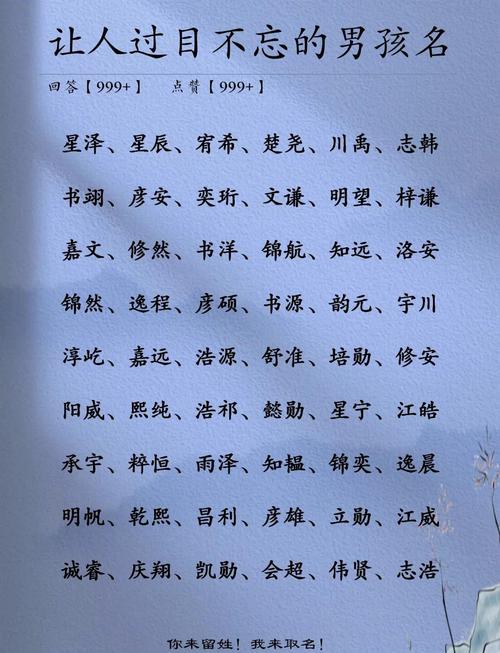 让人过目不忘的男孩名
回答【999+】 点赞【999+】
星泽、星辰、宥希、楚尧、川禹、志韩
书翊、彦安、奕珩、文谦、明望、梓谦
嘉文、修然、书洋、锦航、知远、洛安
锦然、逸程、彦硕、书源、韵元、宇川
淳屹、嘉远、浩源、舒准、培勋、修安
阳威、熙纯、浩祁、懿勋、星宁、江皓
承宇、粹恒、雨泽、知韫、锦奕、逸晨
明帆、乾熙、昌利、彦雄、立勋、江威
诚睿、庆翔、凯勋、会超、伟贤、志浩
你来留姓！我来取名！